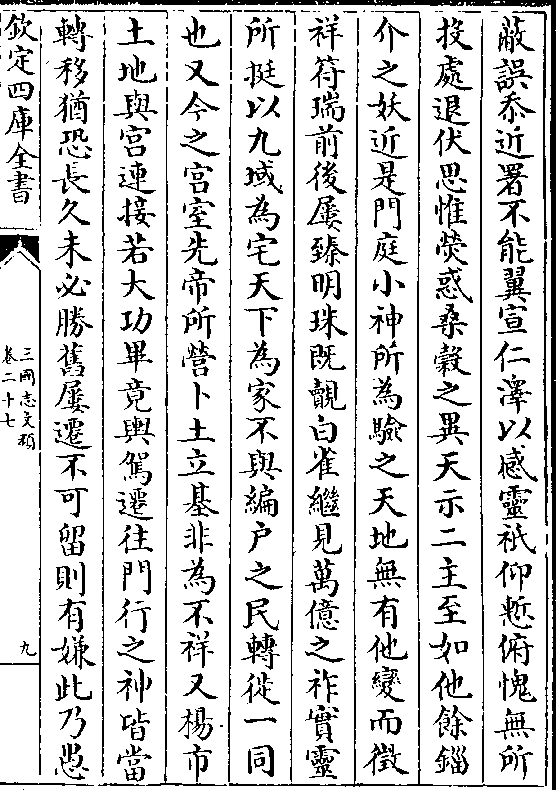 蔽誤忝近署不能翼宣仁澤以感靈祇仰慙俯愧無所
投處退伏思惟熒惑桑榖之異天示二主至如他餘錙
介之妖近是門庭小神所為驗之天地無有他變而徵
祥符瑞前後屢臻明珠既覿白雀繼見萬億之祚實靈
所挺以九域為宅天下為家不與編户之民轉徙一同
也又今之宫室先帝所營卜土立基非為不祥又楊市
土地與宫連接若大功畢竟輿駕遷往門行之神皆當
轉移猶恐長久未必勝舊屢遷不可留則有嫌此乃愚
欽定四庫全書
三國志文類
卷二十七
九